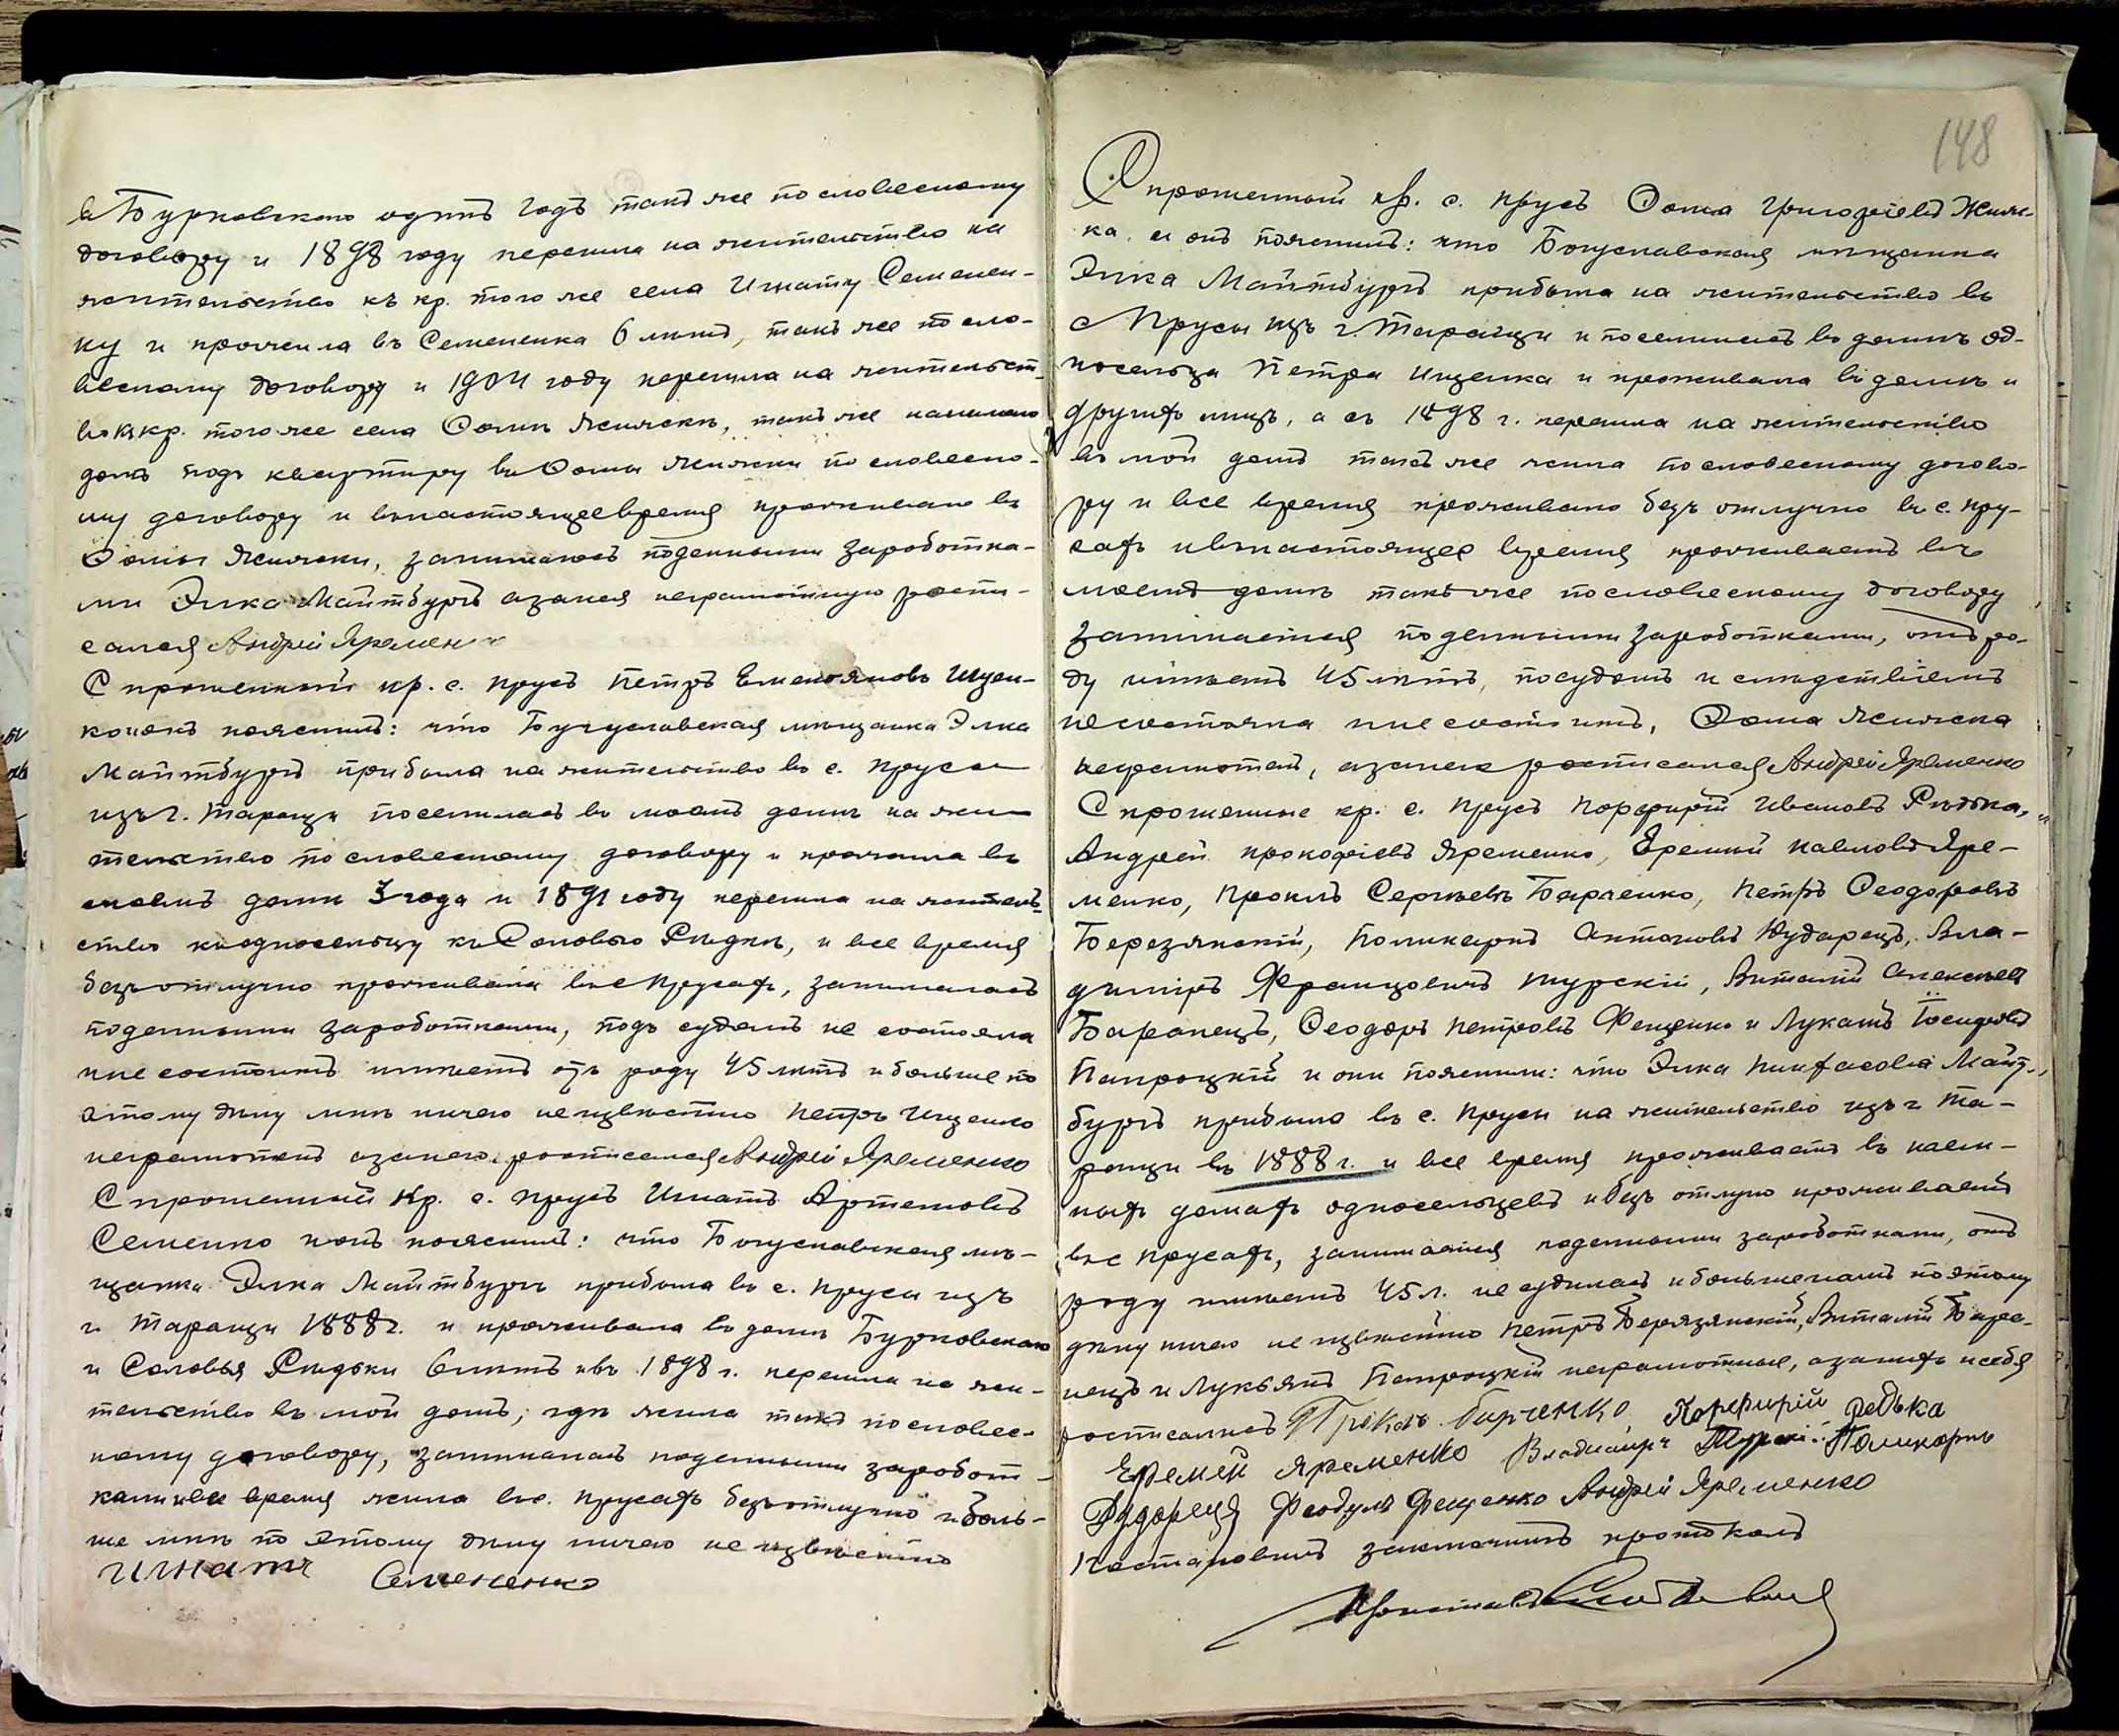 в Бурковского одинъ годъ такъ же по словесному
договору и 1898 году перешла на жительство на
жительство къ кр. того же села Игнату Семенен-
ку и прожила въ Семененка 6 лѣтъ, такъ же по сло-
весному договору и 1904 году перешла на жительст-
во къ кр. того же села Фоми Жижеки, такъ же нанимаю
домъ подъ квартиру въ Фомы Жижеки по словесно-
му договору и въ настоящее время проживаю въ
Фомы Жижеки, занимаюсь поденными заработка-
ми Элка Майтбургъ а за нея неграмотную роспи-
сался Андрей Яременко
Спрошенный кр. с. Прусъ Петръ Емельяновъ Ищен-
ко и онъ пояснилъ: что Богуславская мѣщанка Элка
Майтбургъ прибыла на жительство въ с. Прусы
изъ г. Таращи поселилась въ моемъ домѣ на жи-
тельство по словесному договору и прожила въ
моемъ доми 3 года и 1891 году перешла на житель-
ство къ односельцу къ Соловью Рѣдки, и все время
безъотлучно проживала въ с. Прусахъ, занималась
поденными заработками, подъ судомъ не состояла
и не состоитъ имѣетъ отъ роду 45 лѣтъ и больше по
этому дѣлу мнѣ ничего не извѣстно Петръ Ищенко
неграмотенъ а за него росписался Андрей Яременко
Спрошенный Кр. с. Прусъ Игнатъ Артемовъ
Семенко и онъ пояснилъ: что Богуславская мѣ-
щанка Элка Майтбургъ прибыла въ с. Прусы изъ
г. Таращи 1888 г. и проживала въ домѣ Бурковскаго
и Соловья Рѣдьки 6 лѣтъ и въ 1898 г. перешла на жи-
тельство въ мой домъ, где жила такъ по словес-
ному договору, занималась поденными заработ-
ками и все время жила въ с. Прусахъ безъотлучно и боль-
ше мнѣ по этому дѣлу ничего не извѣстно
Игнатъ Семененко
148
Спрошенный кр. с. Прусъ Фома Григоріевъ Жиже-
ка, и онъ пояснилъ: что Богуславская мѣщанка
Элка Майтбургъ прибыла на жительство въ
с Прусы изъ г. Таращи и поселилась въ домѣ од-
носельца Петра Ищенка и проживала въ домѣ и
другихъ лицъ, а съ 1898 г. перешла на жительство
въ мой домъ такъ же жила по словесному догово-
ру и все время проживала безъ отлучно въ с. Пру-
сахъ и въ настоящее время проживаетъ въ
моемъ домѣ такъ же по словесному договору
занимается поденными заработками, отъ ро-
ду имѣетъ 45 лѣтъ, подсудомъ и слѣдствіемъ
не состояла и не состоитъ, Фома Жижека
неграмотенъ, а за него росписался Андрей Яременко
Спрошенные кр. с. Прусъ Порфирій Ивановъ Рѣдька,
Андрей Прокофіевъ Яременко, Еремій Павловъ Яре-
менко, Проклъ Сергѣевъ Барченко, Петръ Феодоровъ
Березянскій, Поликарпъ Антоновъ Дударецъ, Вла-
диміръ Францовичъ Турскій, Виталій Алексѣевъ
Баранецъ, Феодоръ Петровъ Фещенко и Лукашъ
Папроцкій и они пояснили: что Элка Пинхасова Майт-
бургъ прибыла въ с. Прусы на жительство изъ г Та-
ращи въ 1888 г. и все время проживаетъ въ наем-
ныхъ домахъ односельцевъ и безъ отлучно проживаетъ
въ с Прусахъ, занимается поденными заработками, отъ
роду имѣетъ 45 л. не судилась и больше намъ по этому
дѣлу ничего не извѣстно Петръ Березянскій, Виталій Бара-
нецъ и Лукьянъ Папроцкій неграмотные, а за нихъ и себя
росписались Проклъ Барченко Порфирій Редька
Еремей Яременко Владиміръ Турскій Поликарпъ
Дударець Феодулъ Фещенко Андрей Яременко
Постановилъ заключить протоколъ